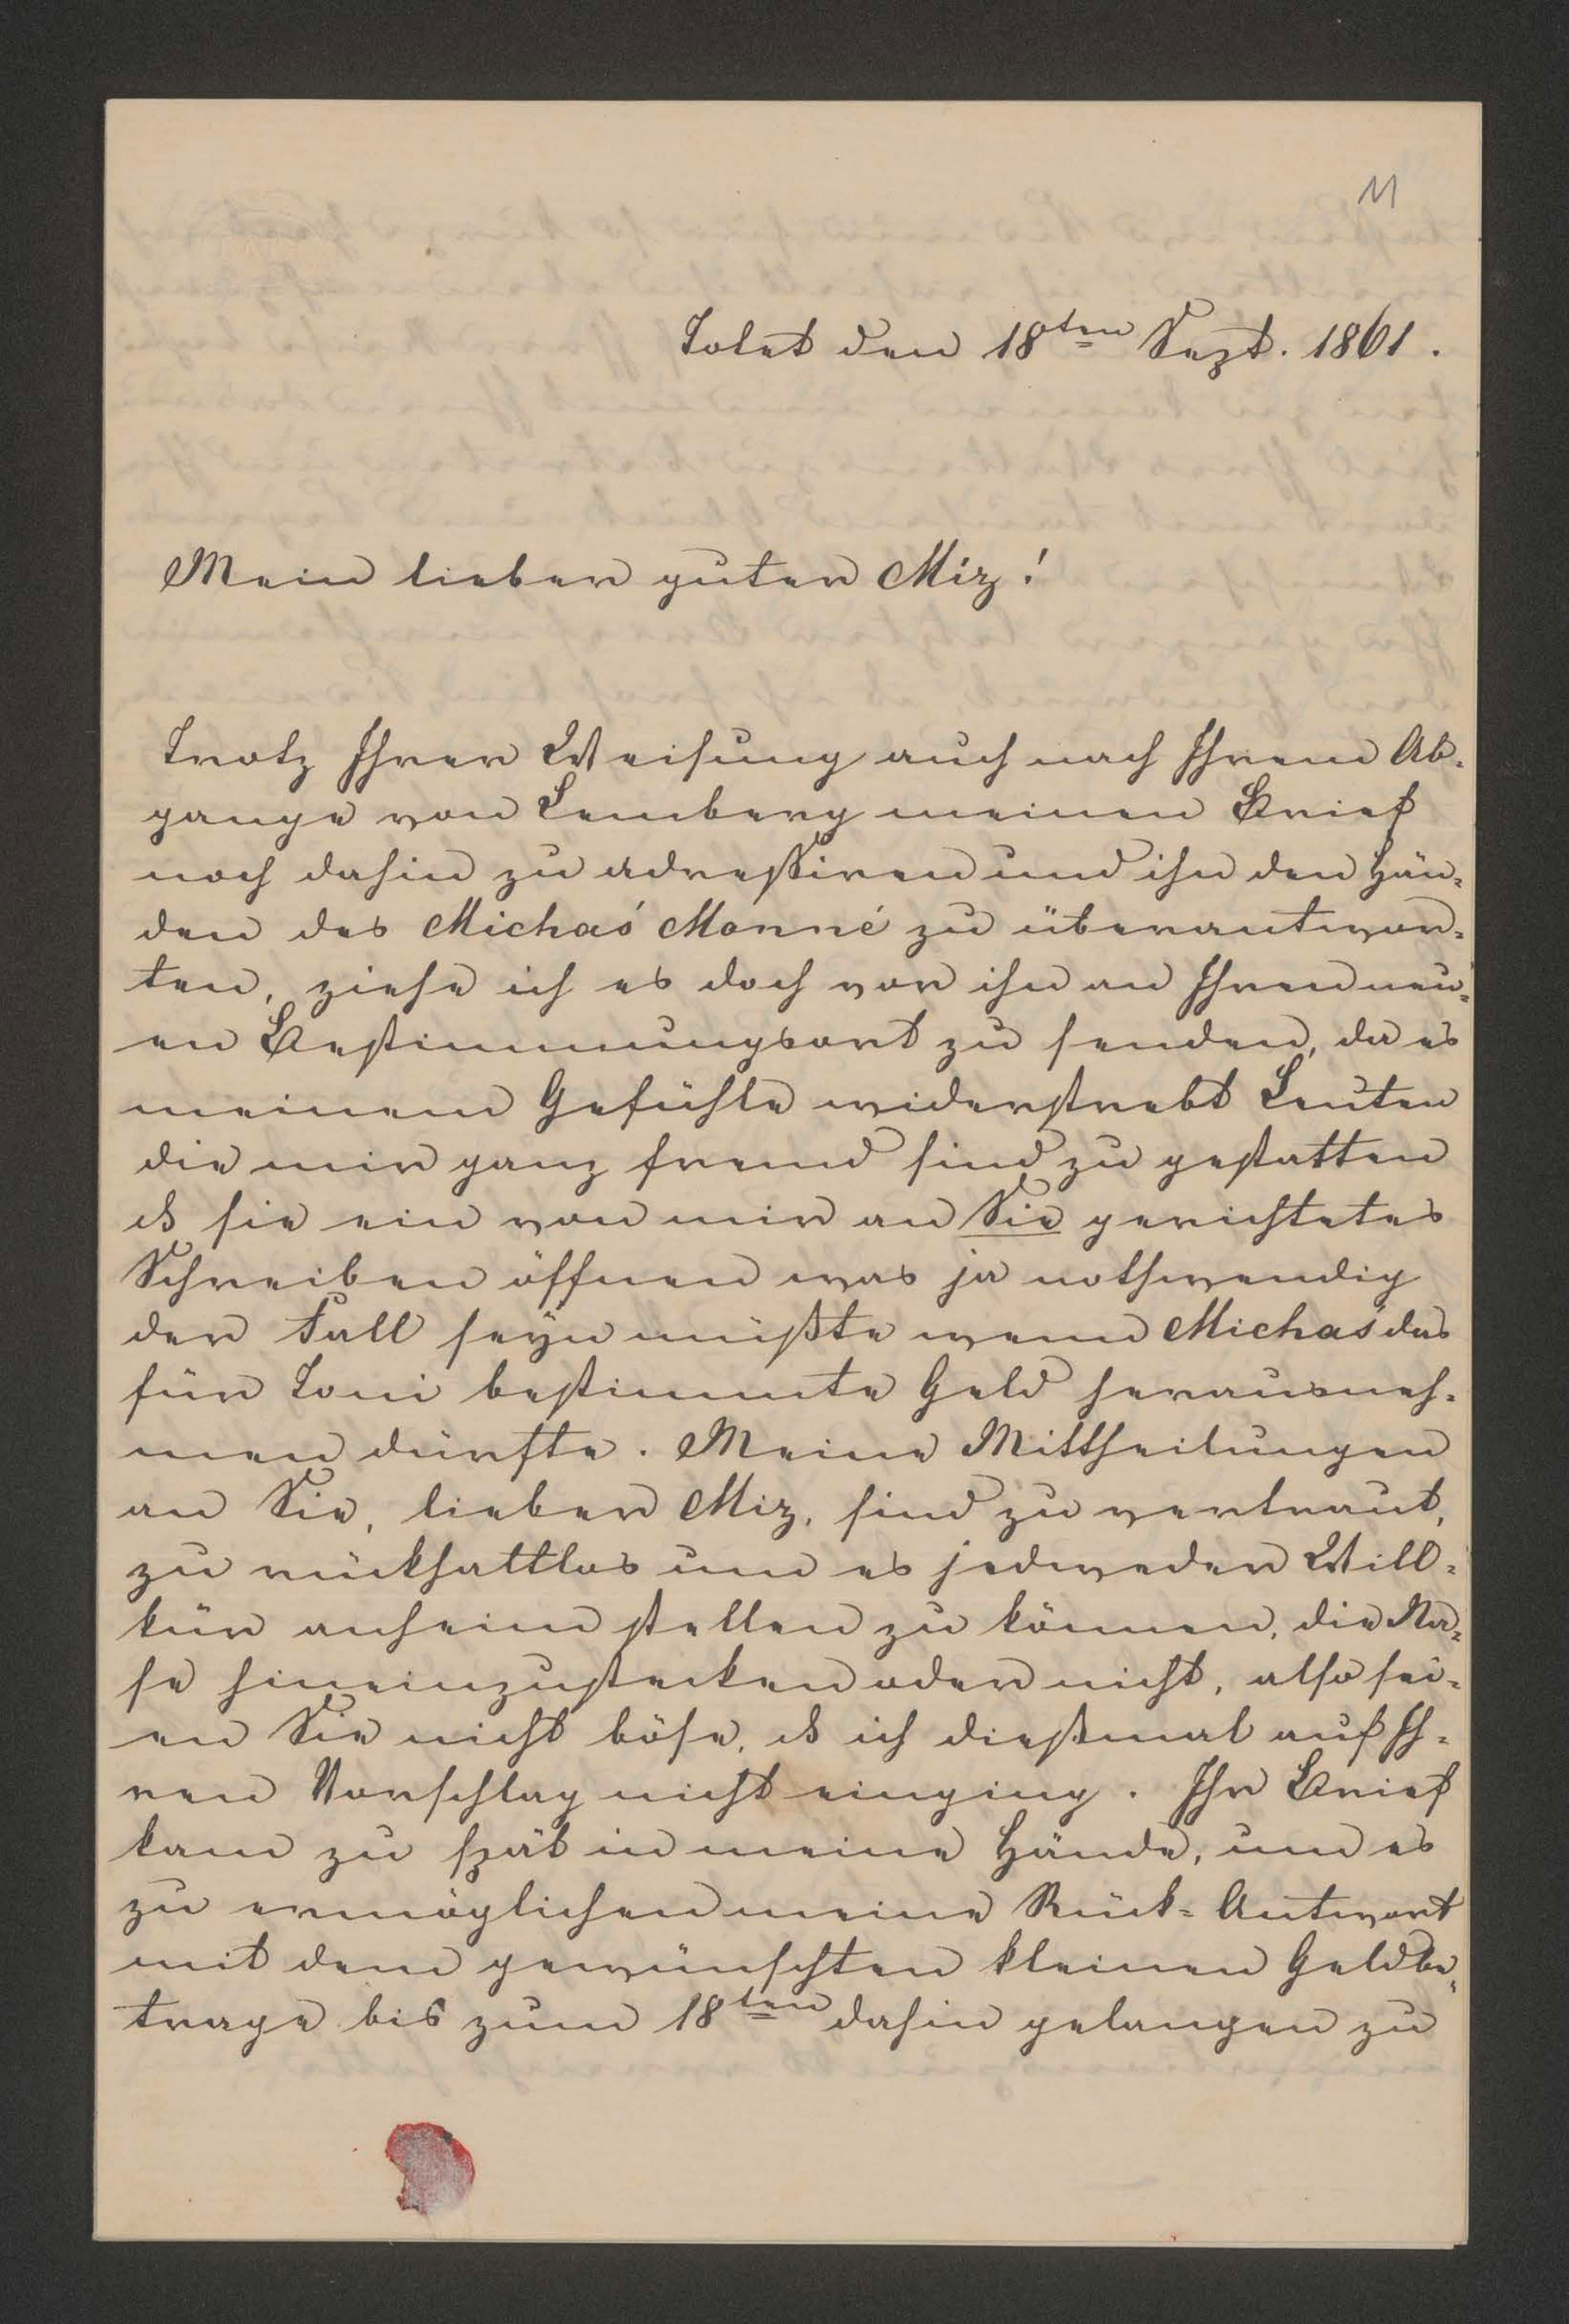 11
Tolet den 18ten Sept. 1861.
Mein lieber guter Miz!
Trotz Ihrer Weisung auch nach Ihrem Ab-
gange von Lemberg meinen Brief
noch dahin zu adreßiren und ihn den Hän-
den des Michaś Monné zu überantwor-
ten, ziehe ich es doch vor ihn an Ihren neu-
en Bestimmungsort zu senden, da es
meinem Gefühle widerstrebt Leuten
die mir ganz fremd sind zu gestatten
ds sie ein von mir an Sie gerichtetes
Schreiben öffnen was ja nothwendig
der Fall seyn müßte wenn Michaś das
für Toni bestimmte Geld herausneh-
men dürfte. Meine Mittheilungen
an Sie, lieber Miz, sind zu vertraut,
zu rückhaltlos um es jedweder Will-
kür anheim stellen zu können, die Na-
se hineinzustecken oder nicht, also sei-
en Sie nicht böse, ds ich dießmal auf Ih-
ren Vorschlag nicht einging. Ihr Brief
kam zu spät in meine Hände, um es
zu ermöglichen meine Rück-Antwort
mit dem gewünschten kleinen Geldbe-
trage bis zum 18ten dahin gelangen zu